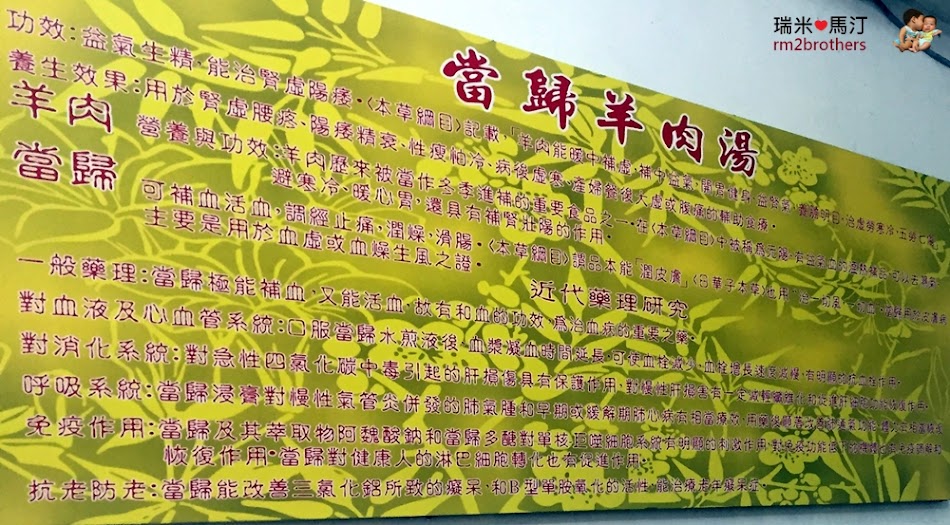 瑞米❤馬汀
rm2brothers
當歸羊肉湯
功效:益氣生精,能治腎虛陽痿。〈本草綱目〉記載,「羊肉能暖中補虛,補中益氣,開胃健身,益腎氣,養膽明目,治虛勞寒冷,五勞七傷
養生效果:用於腎虛腰疼、陽痿精衰、性瘦怕冷、病後虛寒、產婦產後大虛或腹痛的輔助食療。
羊肉
營養與功效:羊肉歷來被當作冬季進補的重要食品之一。在〈本草綱目〉中被稱為
避寒冷、暖心胃,還具有補腎壯陽的作用。
當歸
可補血活血,調經止痛,潤燥,滑腸。〈本草綱目〉謂品本能「潤皮膚」,〈日華子本草〉也用
主要是用於血虛或血燥生風之證。
近代藥理研究
一般藥理:當歸極能補血,又能活血,故有和血的功效,為治血病的重要之藥。
對血液及心血管系統:口服當歸水煎液後,血漿凝血時間延長,可使血栓減少,血栓增長速度減慢,有明顯的抗血栓作用。
對消化系統:對急性四氯化碳中毒引起的肝損傷具有保護作用,對慢性肝損害有一定減輕纖維化和促進肝細胞功能恢復作用。
呼吸系統:當歸浸膏對慢性氣管炎併發的肺氣腫和早期或緩解期肺心病有相當療效,用藥後
免疫作用:當歸及其萃取物阿魏酸鈉和當歸多醣對單核巨噬細胞系統有明顯的刺激作用,對免疫功能低下的
恢復作用。當歸對健康人的淋巴細胞轉化也有促進作用。
抗老防老:當歸能改善三氯化鋁所致的癡呆,和B型單胺氧化的活性,能治療老年癡呆症。